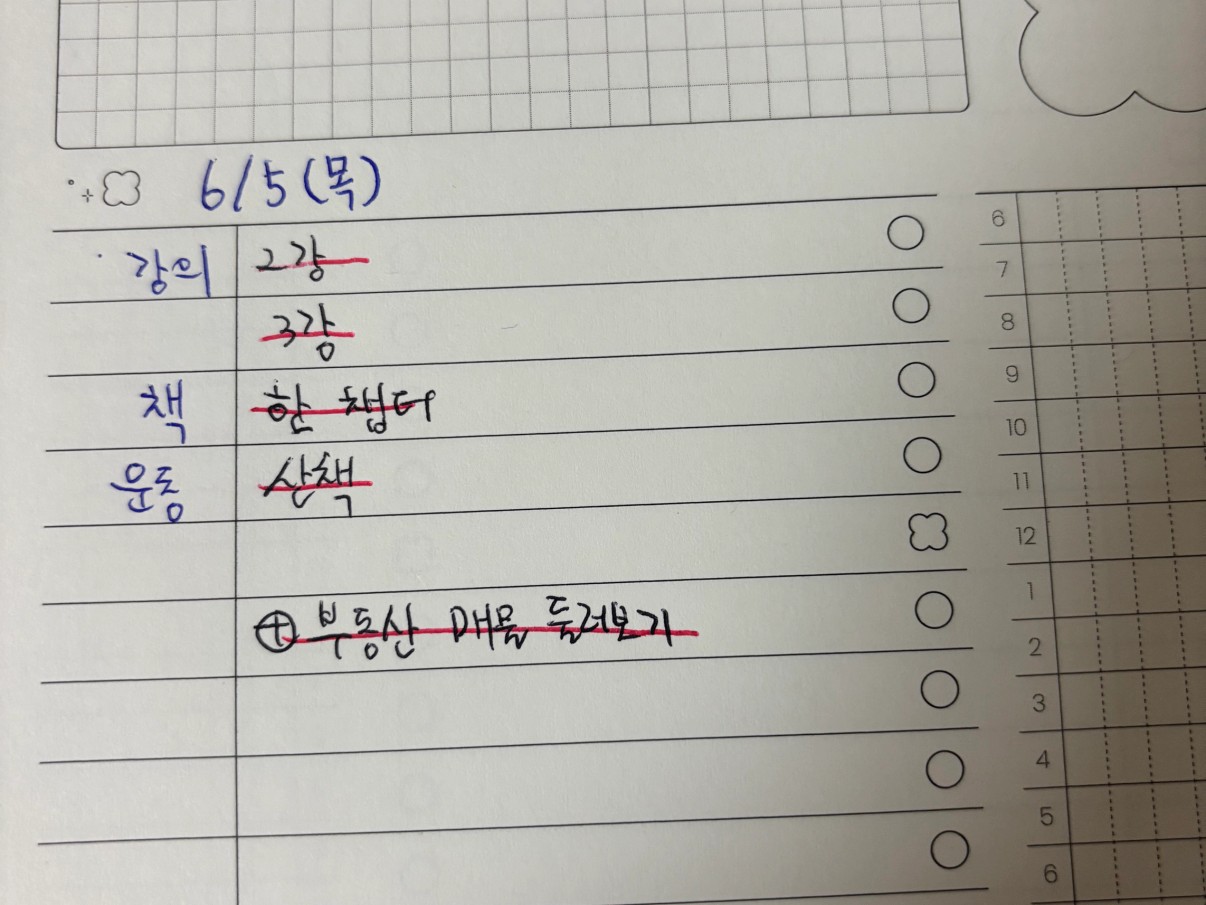 6/5(목)
강의 2강
3강
책 한 챕터
운동 산책
⊕ 부동산 매물 둘러보기
6
7
8
9
10
11
12
1
2
3
4
5
6